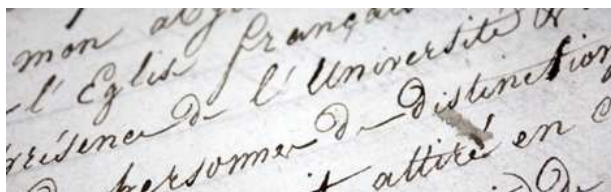 mon
l'Eglise français
présence de l'Université &
personnes de distinction
attiré en